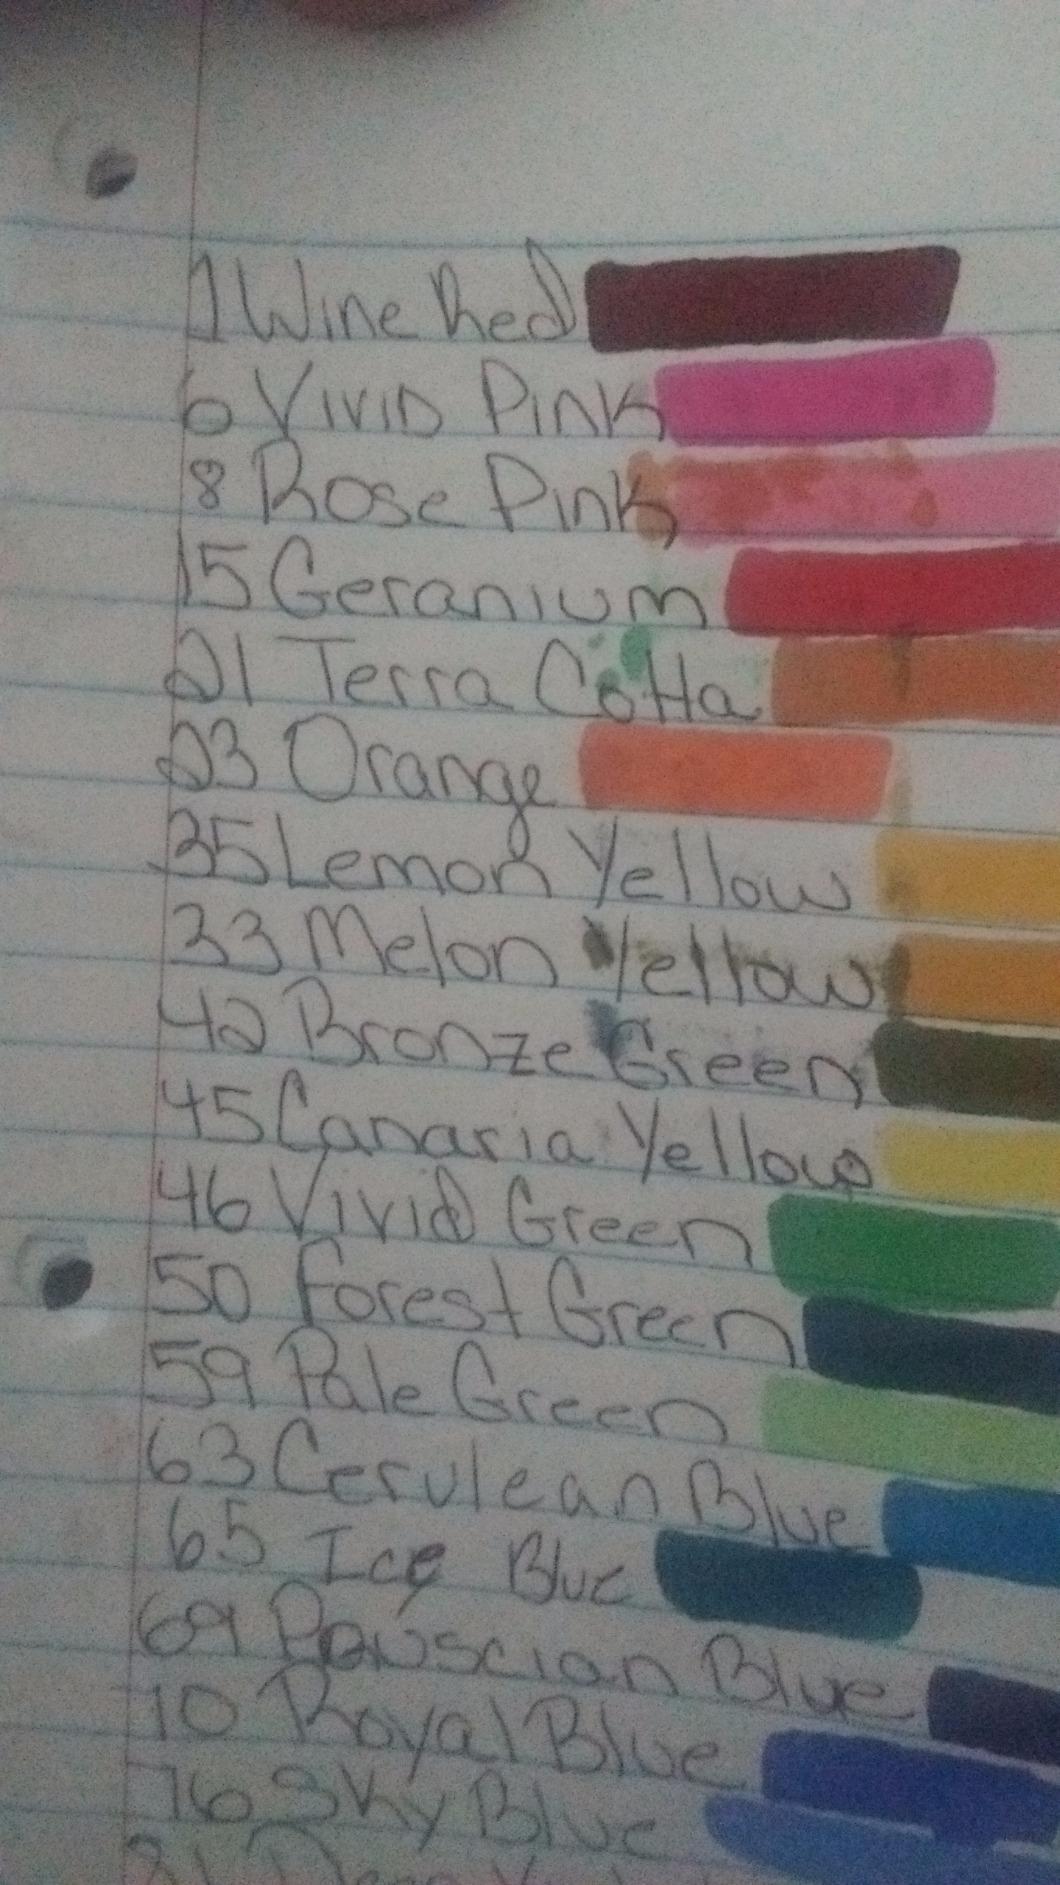 1 Wine Red
6 Vivid Pink
8 Rose Pink
15 Geranium
21 Terra Cotta
23 Orange
35 Lemon Yellow
33 Melon Yellow
42 Bronze Green
45 Canaria Yellow
46 Vivid Green
50 Forest Green
59 Pale Green
63 Cerulean Blue
65 Ice Blue
69 Blue
10 Royal Blue
76 Sky Blue
81 Deep